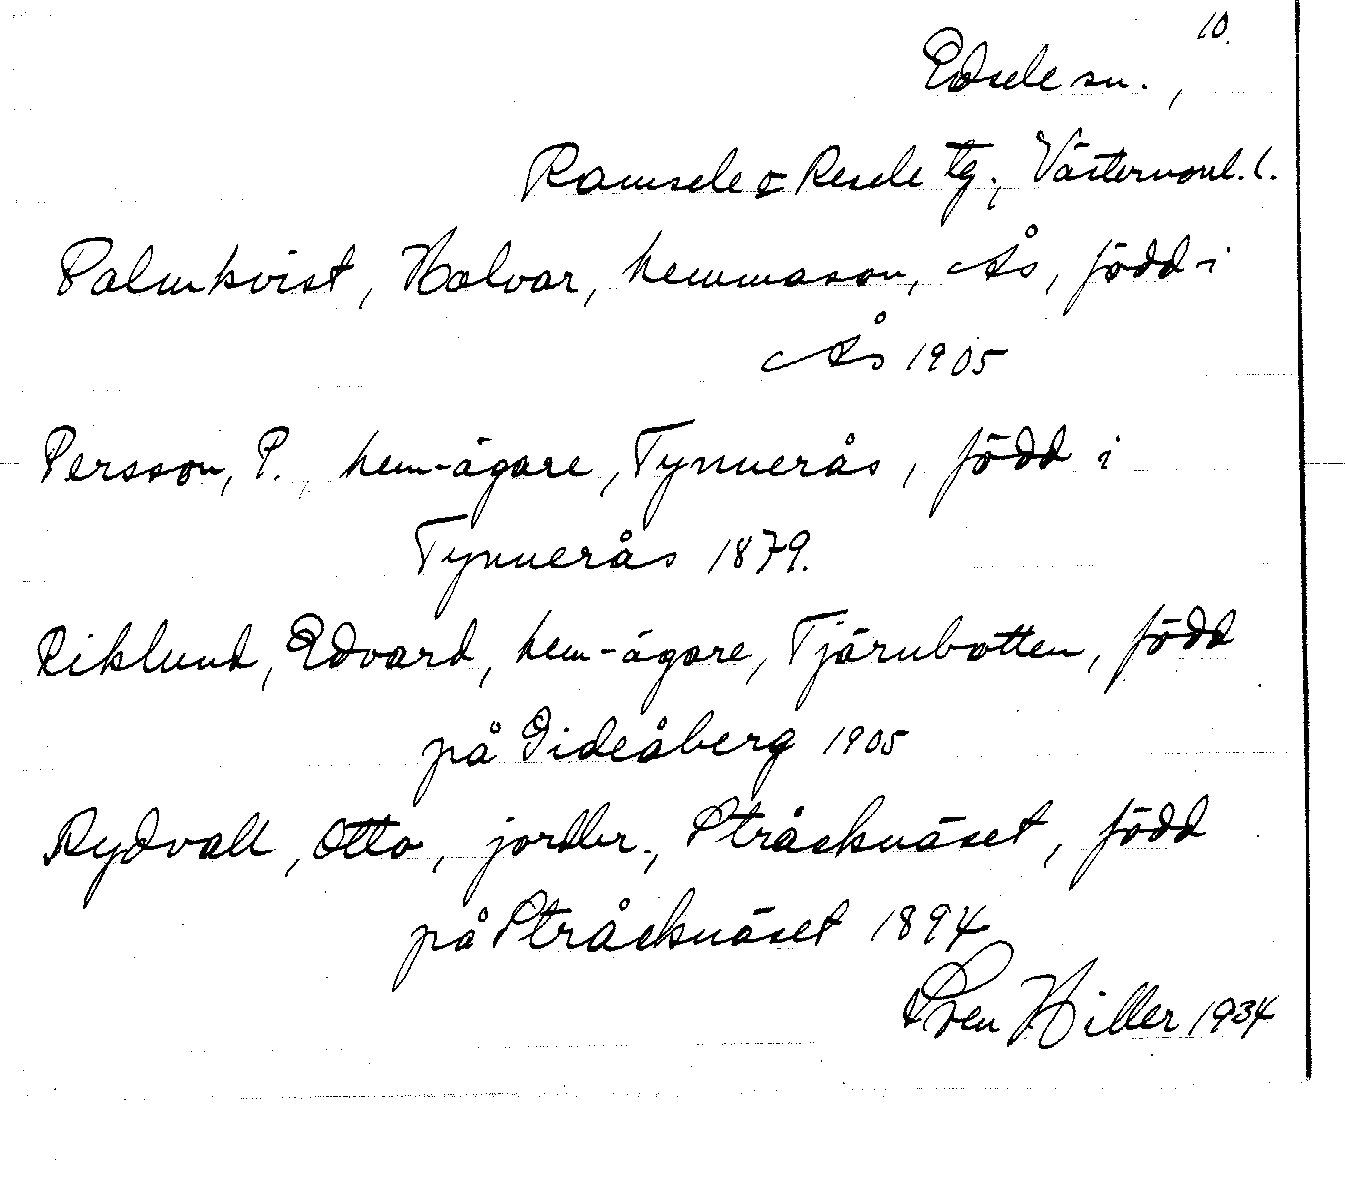 10.
Edsele sn.,
Ramsele o Resele tg., Västernorrl. l.
Palmkvist, Halvar, hemmason, Ås, född i
Ås 1905
Persson, P., hem-ägare, Tynnerås, född i
Tynnerås 1879.
Riklund, Edvard, hem-ägare, Tjärnbotten, född
på Gideåberg 1905
Rydvall, Otto, jordbr., Stråcknäset, född
på Stråcknäset 1894
Sven Hiller 1934